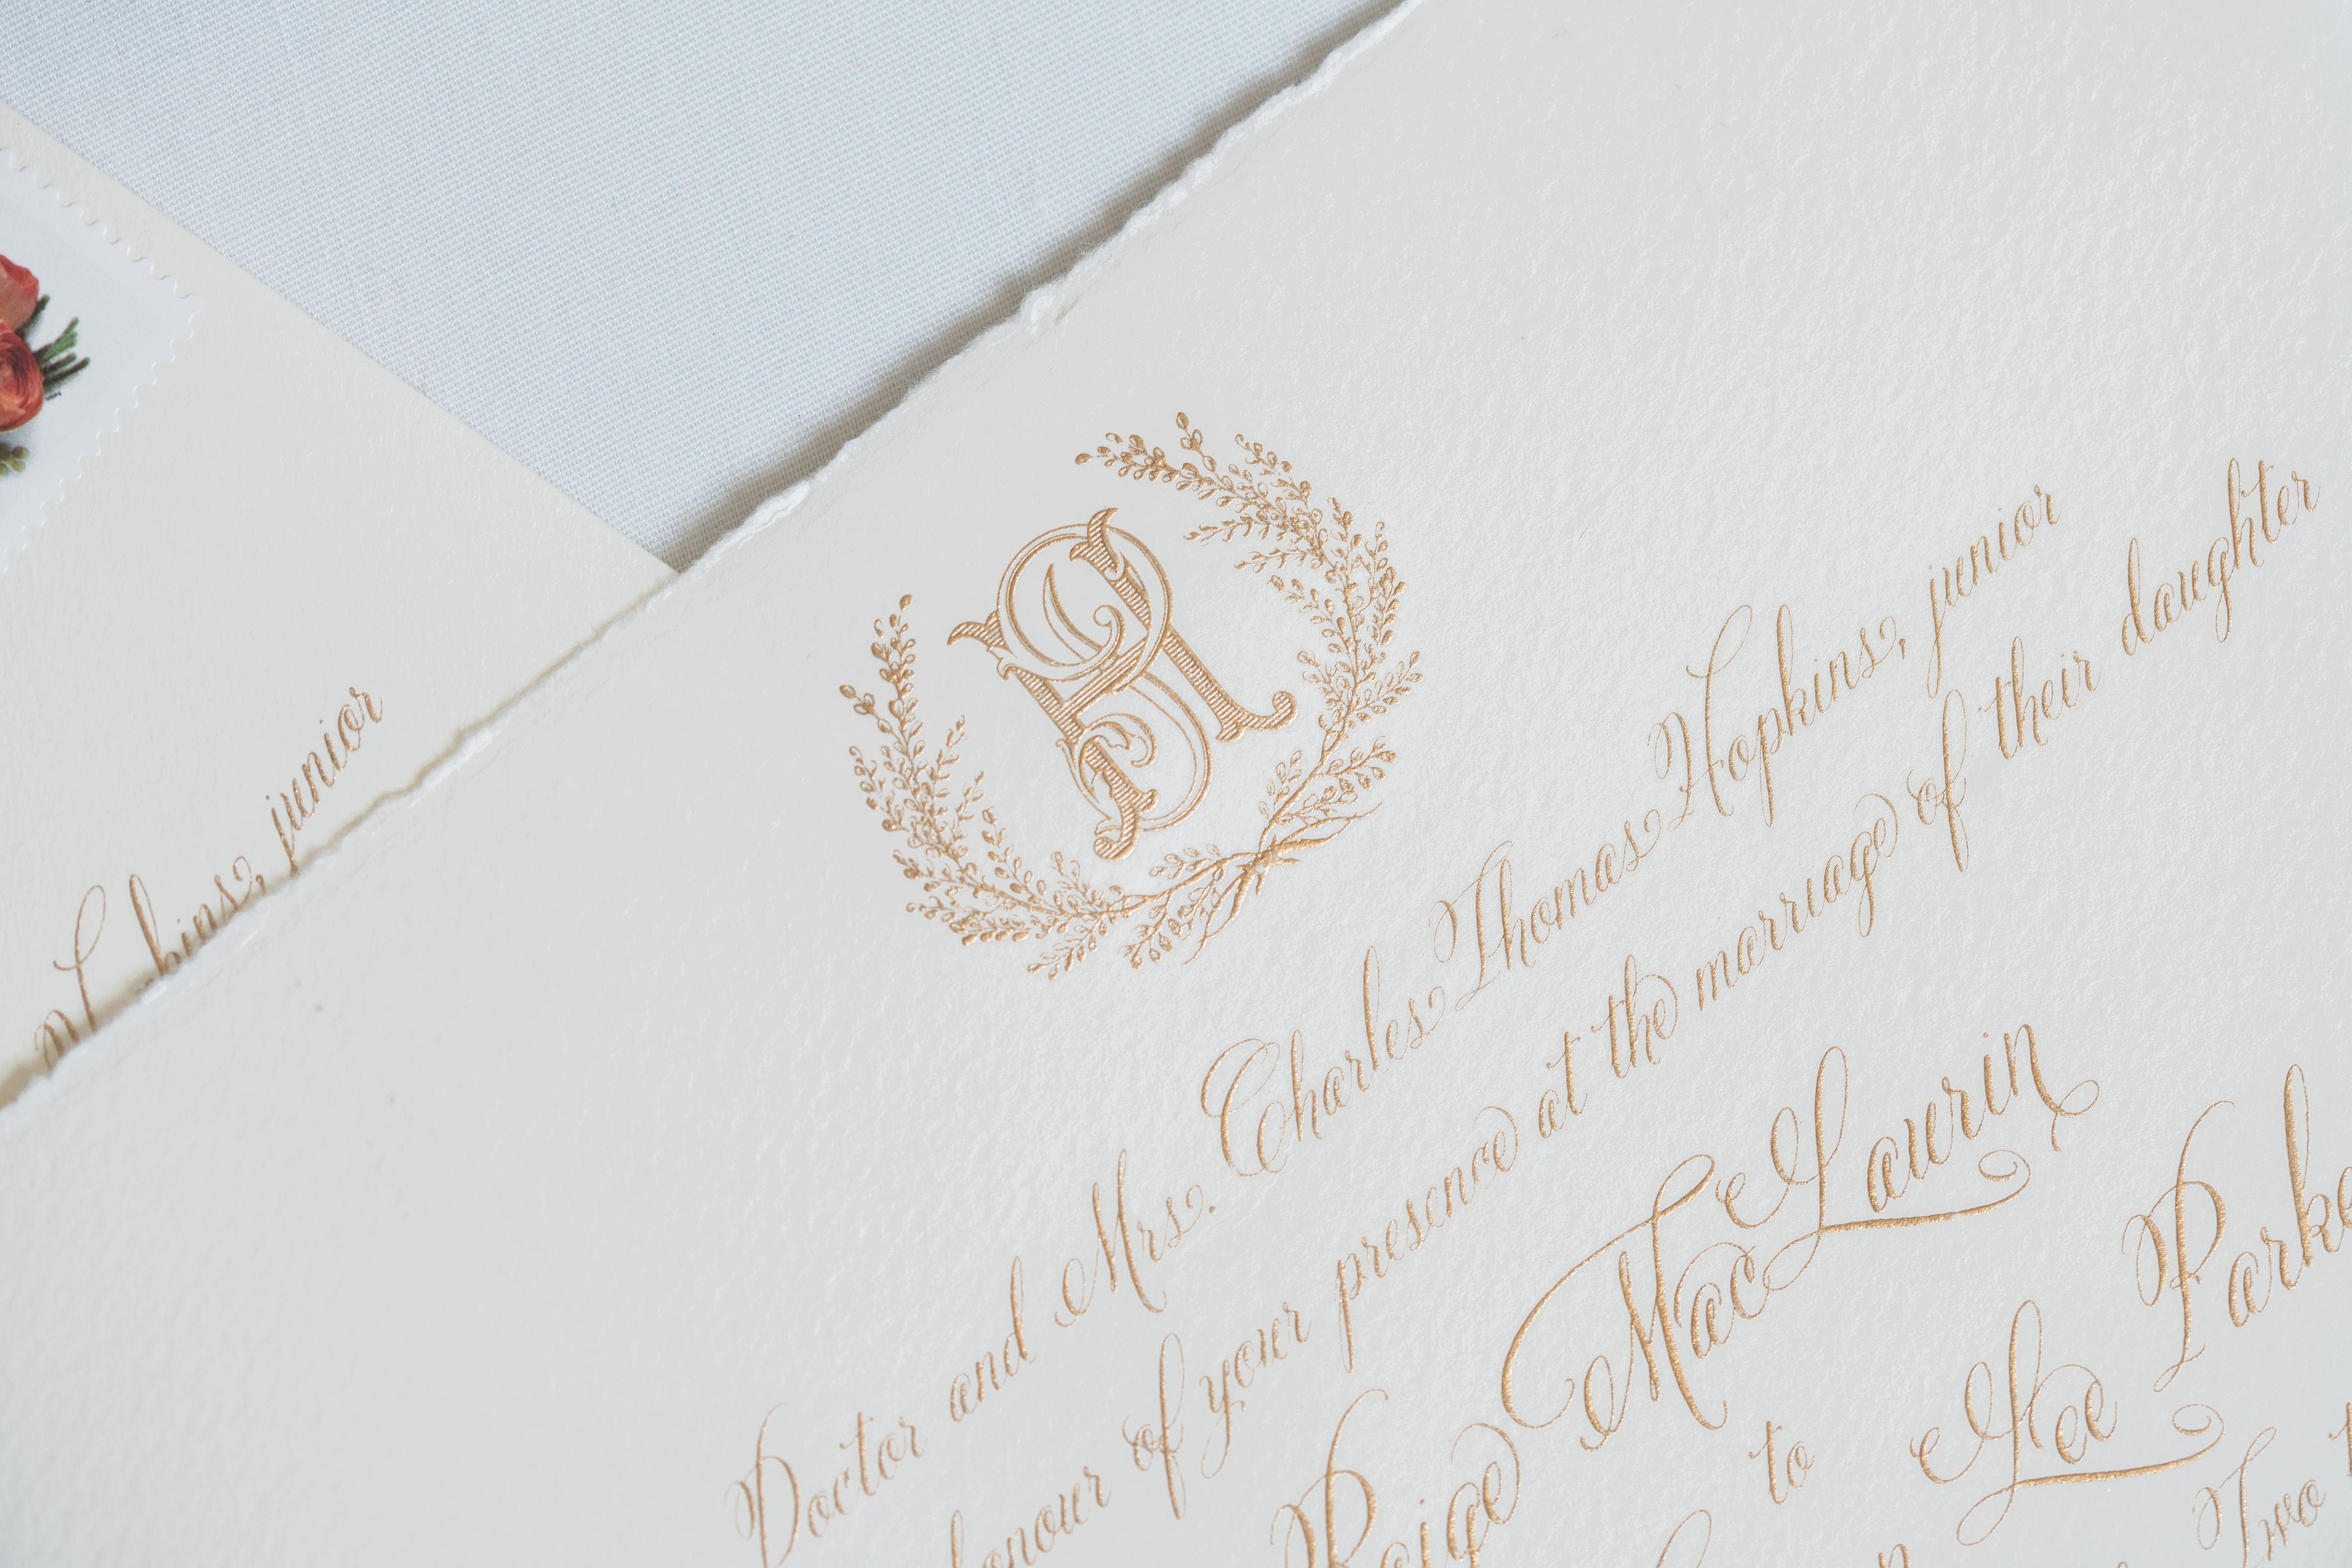 junior
Doctor and Mrs. Charles Thomas Hopkins, junior
honour of your presence at the marriage of their daughter
Paige MacLaurin
to
Lee
Two